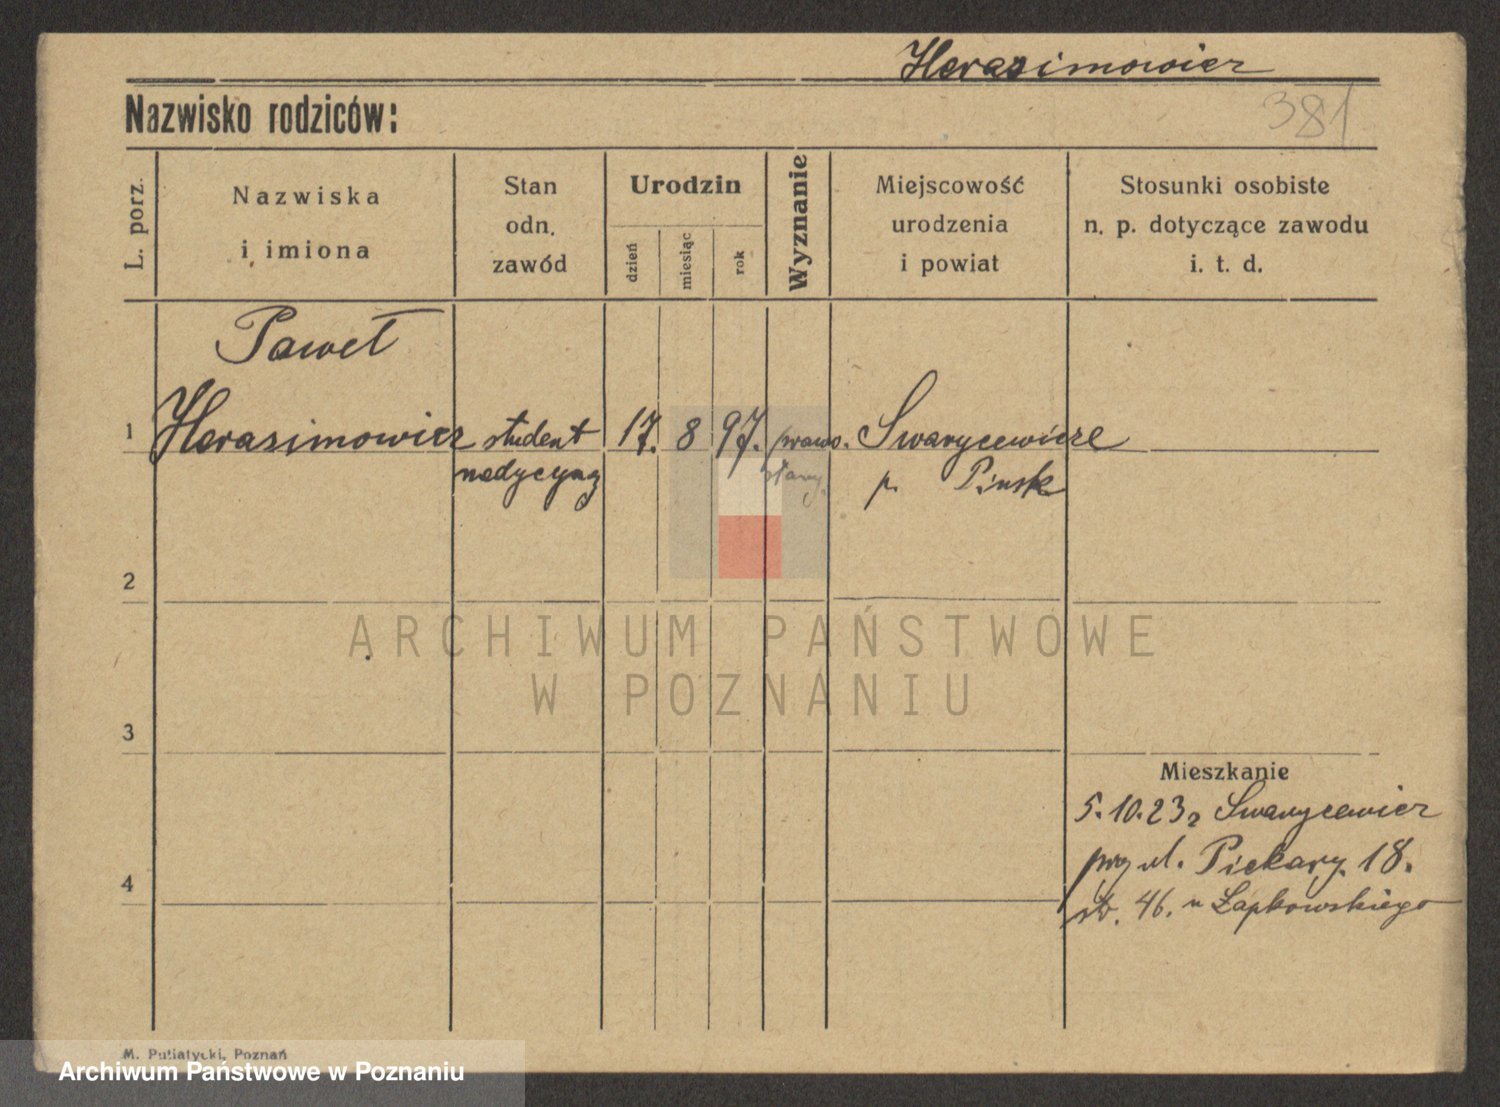 Herasimowicz
Nazwisko rodziców:
381
L. porz.
Nazwiska
i imiona
Stan
odn.
zawód
Urodzin
dzień
miesiąc
rok
Wyznanie
Miejscowość
urodzenia
i powiat
Stosunki osobiste
n. p. dotyczące zawodu
i. t. d.
Paweł
1 Herasimowicz student 17. 8 97. prawo. Swarycewicze
medycyny sławny. p. Pinsk
2
ARCHIWUM PAŃSTWOWE
W POZNANIU
3
Mieszkanie
5.10.23 z Swarycewicz
przy ul. Piekary 18.
4
str. 46. u Łapkowskiego
M. Putiatycki, Poznań
Archiwum Państwowe w Poznaniu